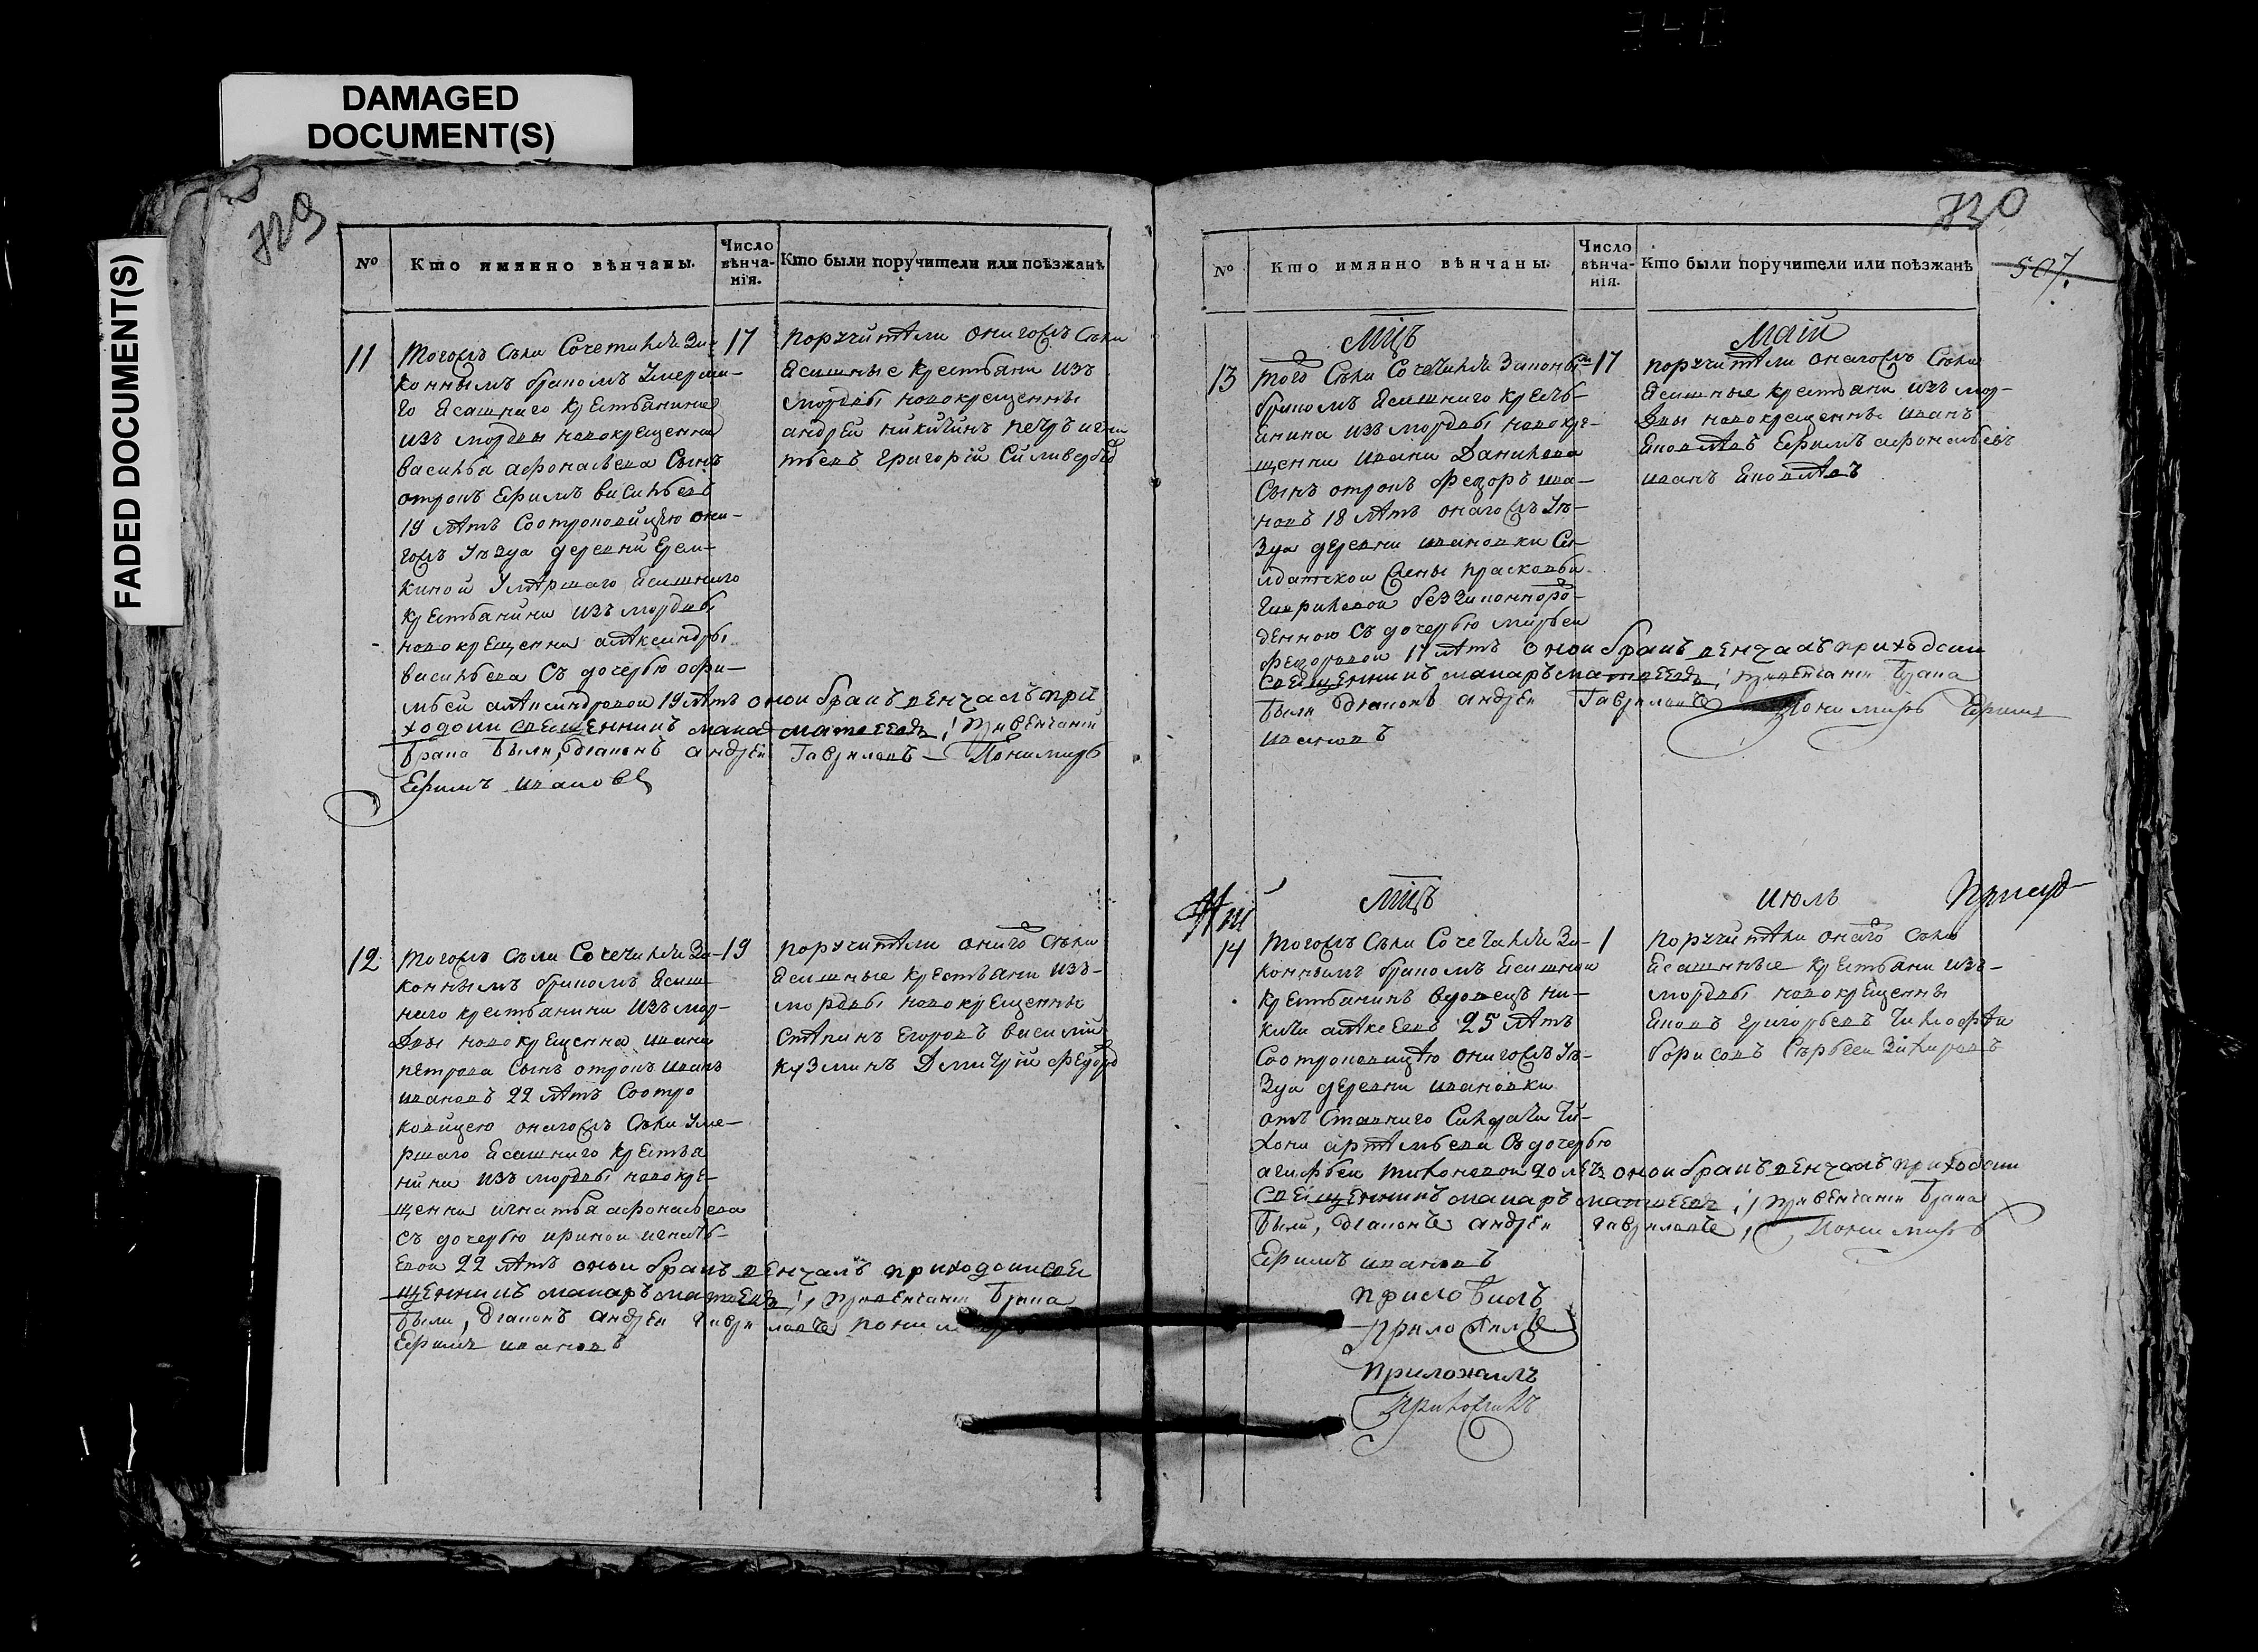 DAMAGED
DOCUMENT(S)
FADED DOCUMENT(S)
729
№
Кто имянно вѣнчаны.
Число
вѣнча-
нія.
Кто были поручители или поѣзжанѣ
11
Тогожъ Села Сочетан За-
коннымъ бракомъ Умерша-
го Ясашнаго крестьянина
изъ мордвы новокрещенна
василья афонасьева Сынъ
отрокъ Ефимъ васильевъ
19 лѣтъ Соотроковицею она-
гожъ Уѣзда деревни Ерем-
киной Умѣршаго Ясашнаго
крестьянина изъ мордвы
новокрещенна алѣксандры
васильева Съ дочерью офи-
мьей алѣксандровой 19 лѣтъ оной бракъ венчалъ при
ходский священникъ макар матвеевъ, привенчании
брака были, диаконъ андрей Гавриловъ Пономарь
Ефимъ ивановъ
17
поручители онагожъ Села
Ясашные крестьяни изъ
мордвы новокрещенны
андрей никитинъ петръ игна
тьевъ григорий Силиверстовъ
12
Тогожъ Села Сочетан За-
коннымъ бракомъ Ясаш-
наго крестьянина Изъ мор-
двы новокрещенна ивана
петрова Сынъ отрокъ иванъ
ивановъ 22 лѣтъ Соотро
ковицею онагожъ Села Уме-
ршаго Ясашнаго крестья
нина изъ мордвы новокре-
щенна игнатья афонасьева
съ дочерью ириной игнать-
евой 22 лѣтъ оной бракъ венчалъ приходский свя
щенникъ макаръ матвеевъ, привенчании брака
были, диаконъ андрей гавриловъ
Ефимъ ивановъ
19
поручители онаго Села
Ясашные крестьяни изъ-
мордвы новокрещенны
Степанъ Егоровъ василий
кузминъ Дмитрий федоровъ
730
507.
№
Кто имянно вѣнчаны.
Число
вѣнча-
нія.
Кто были поручители или поѣзжанѣ
мцъ
маій
13
того Села Сочетан Законны
бракомъ Ясашнаго кресть-
янина изъ мордвы новокре-
щенна ивана Данилова
Сынъ отрокъ федоръ ива-
новъ 18 лѣтъ онагожъ Уѣ-
зда деревни ивановки Со-
лдатской жены прасковьи
гавриловой беззаконноро-
денною съ дочерью марьей
федоровой 17 лѣтъ оной бракъ венчалъ приходский
священникъ макаръ матвеевъ, привенчании брака
были диаконъ андрей Гавриловъ Пономарь Ефимъ
ивановъ
17
поручители онагожъ Села
Ясашные крестьяни изъ мор-
двы новокрещенны иванъ
Яковлѣвъ Ефимъ афонасьевъ
иванъ Яковлѣвъ
мцъ
июль
14
Тогожъ Села Сочетан За-
коннымъ бракомъ Ясашной
крестьянинъ вдовецъ ни-
кита алѣксеевъ 25 лѣтъ
Соотроковицею онагожъ Уѣ-
зда деревни ивановки
отъ Ставнаго Салдата Ти-
хона артѣмьева Съ дочерью
агафьей тихоновой 20 летъ оной бракъ венчалъ приходский
священникъ макаръ матвеевъ, привенчании брака
были, диаконъ андрей гавриловъ, Пономарь
Ефимъ ивановъ
1
поручители онаго Села
Ясашныые крестьяни изъ-
мордвы новокрещенны
Яковъ григорьевъ тимофей
борисовъ Сергей Захаровъ